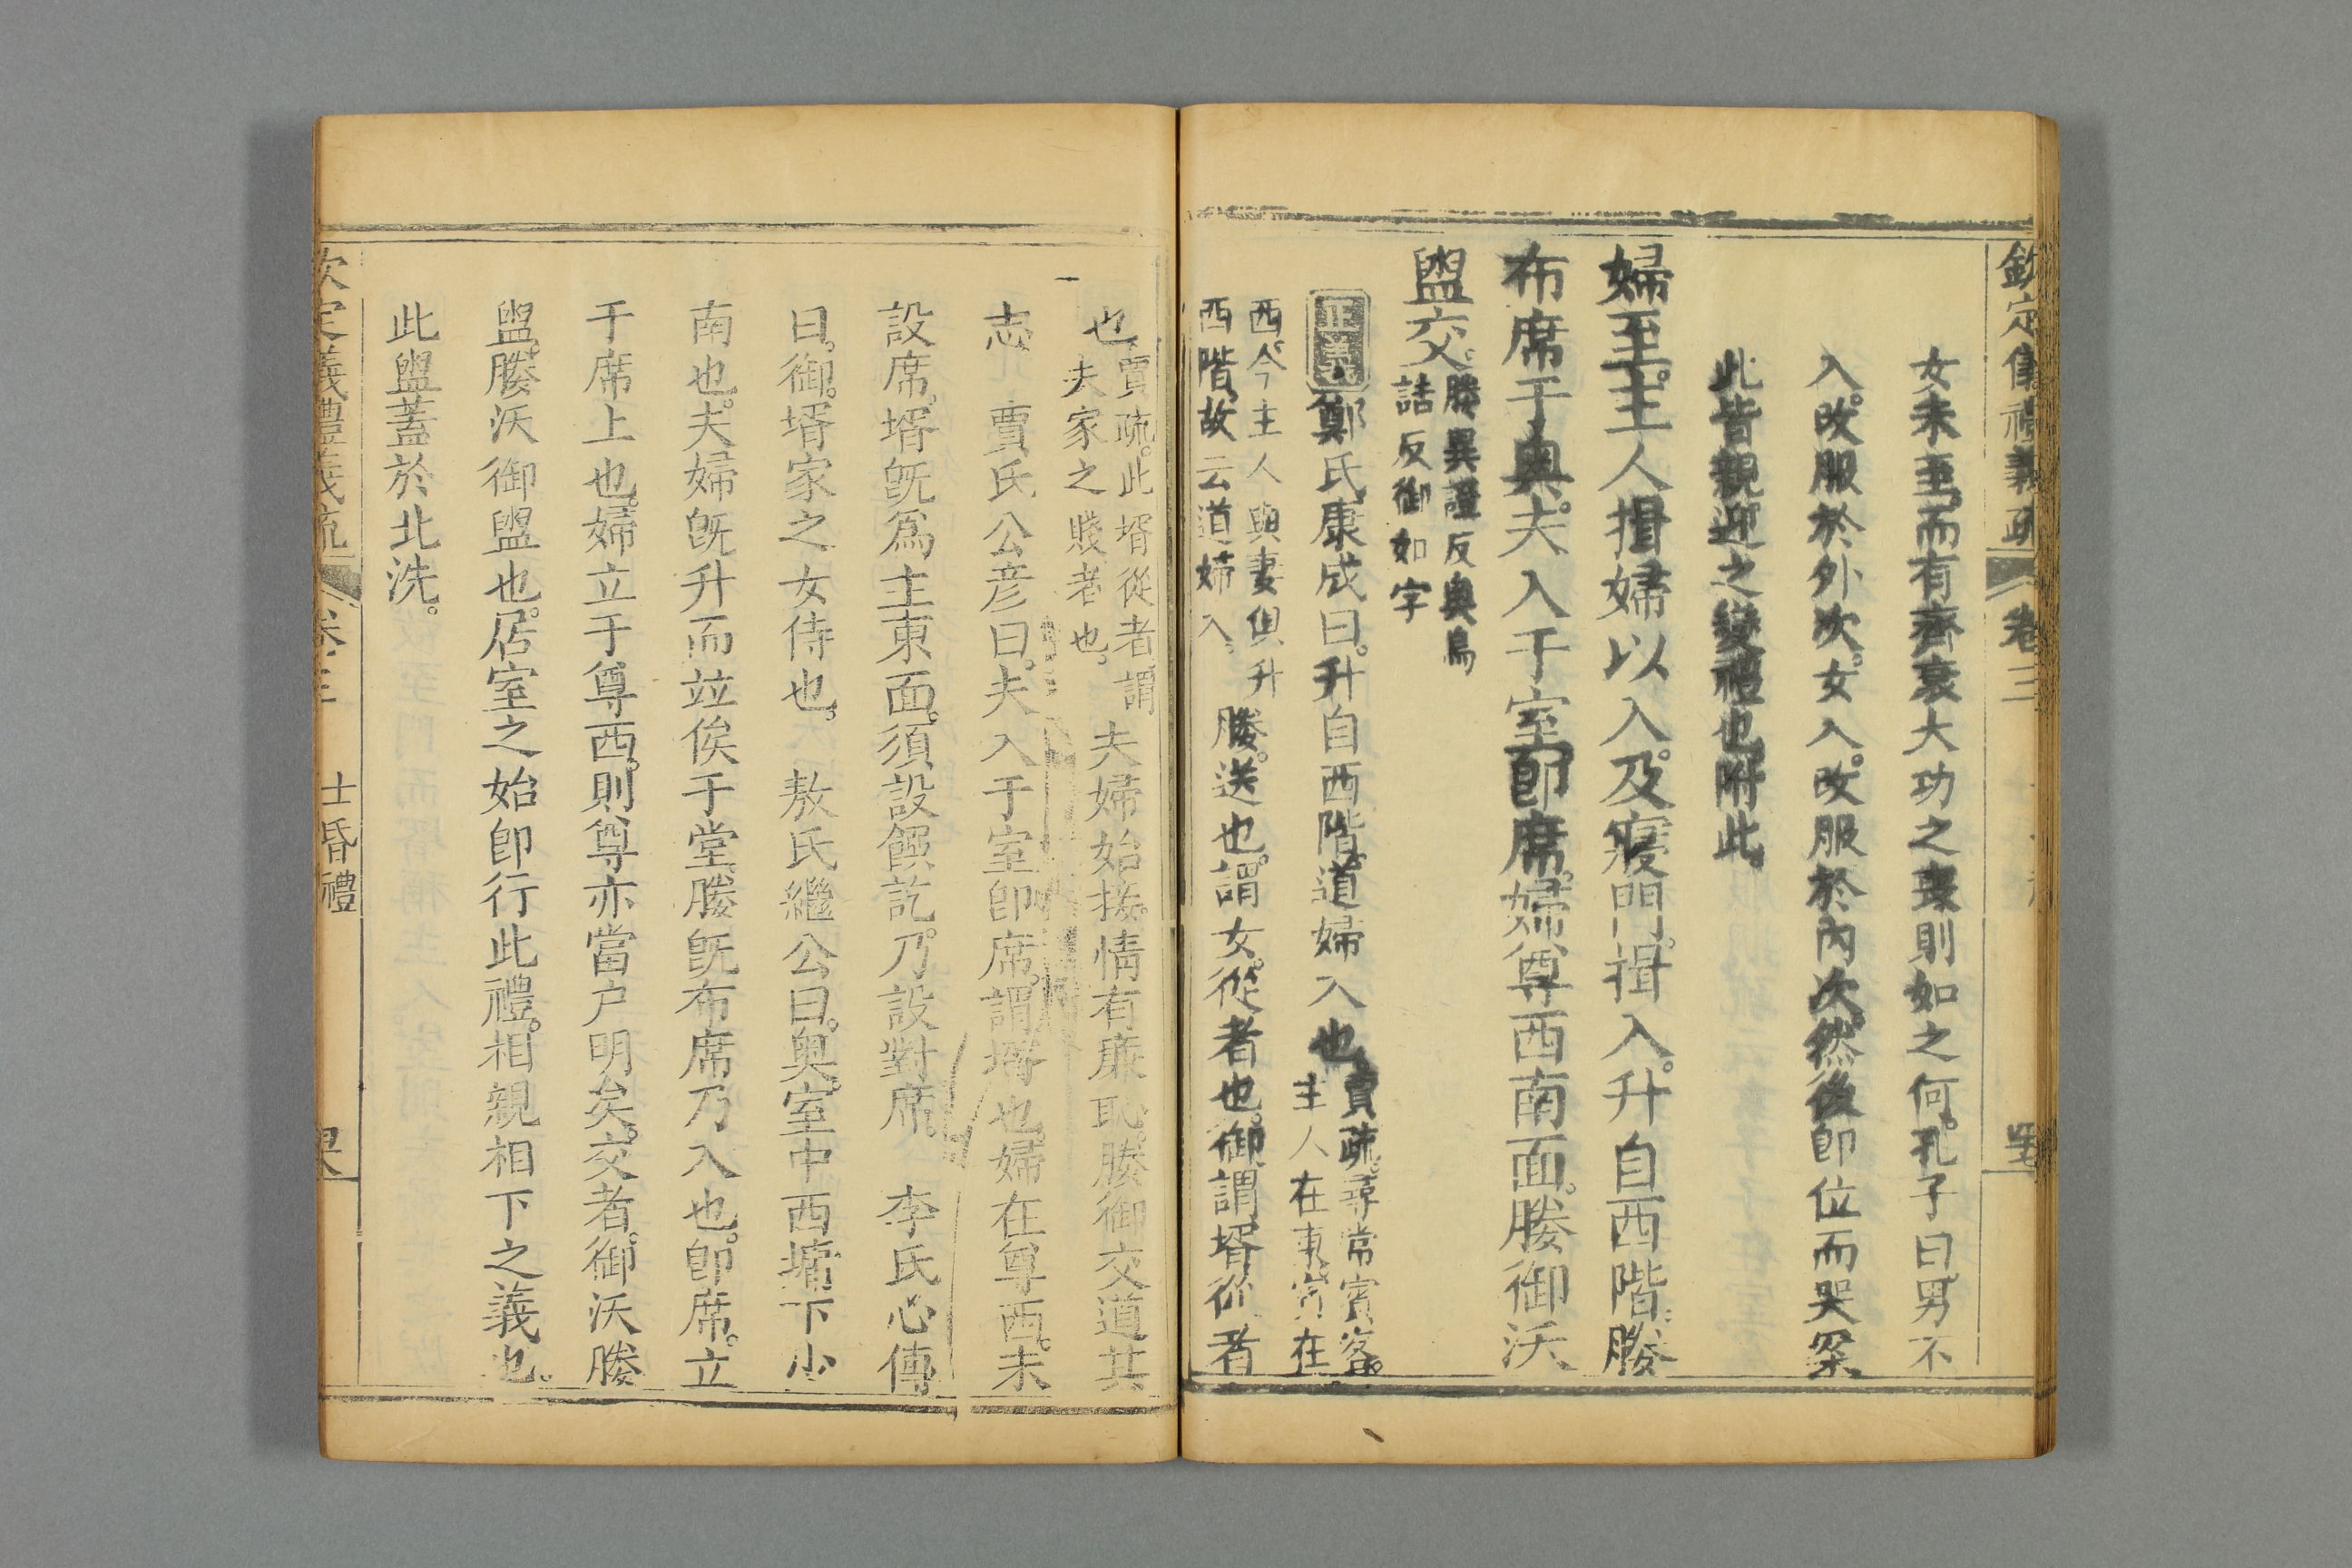 欽定儀禮義疏 卷三
女未至而有齊衰大功之喪則如之何孔子曰男不
入改服於外次女入改服於內次然後即位而哭案
此皆親迎之變禮也附此
婦至主人揖婦以入及寢門揖入升自西階媵
布席于奧夫入于室卽席婦尊西南面媵御沃
盥交媵異證反奧烏
詰反御如字
正義鄭氏康成曰升自西階道婦入也賈疏尋常賓客
主人在東賓在
西今主人與妻俱升
西階故云道婦入媵送也謂女從者也御謂壻從者
也賈疏此壻從者謂
夫家之賤者也夫婦始接情有廉恥媵御交道其
志 賈氏公彦曰夫入于室卽席謂壻也婦在尊西未
設席壻旣爲主東面須設饌訖乃設對席 李氏心傳
曰御壻家之女侍也 敖氏繼公曰奧室中西墉下少
南也夫婦旣升而竝俟于堂媵旣布席乃入也卽席立
于席上也婦立于尊西則尊亦當户明矣交者御沃媵
盥媵沃御盥也居室之始卽行此禮相親相下之義也
此盥蓋於北洗
欽定義禮義疏 卷三 士昏禮